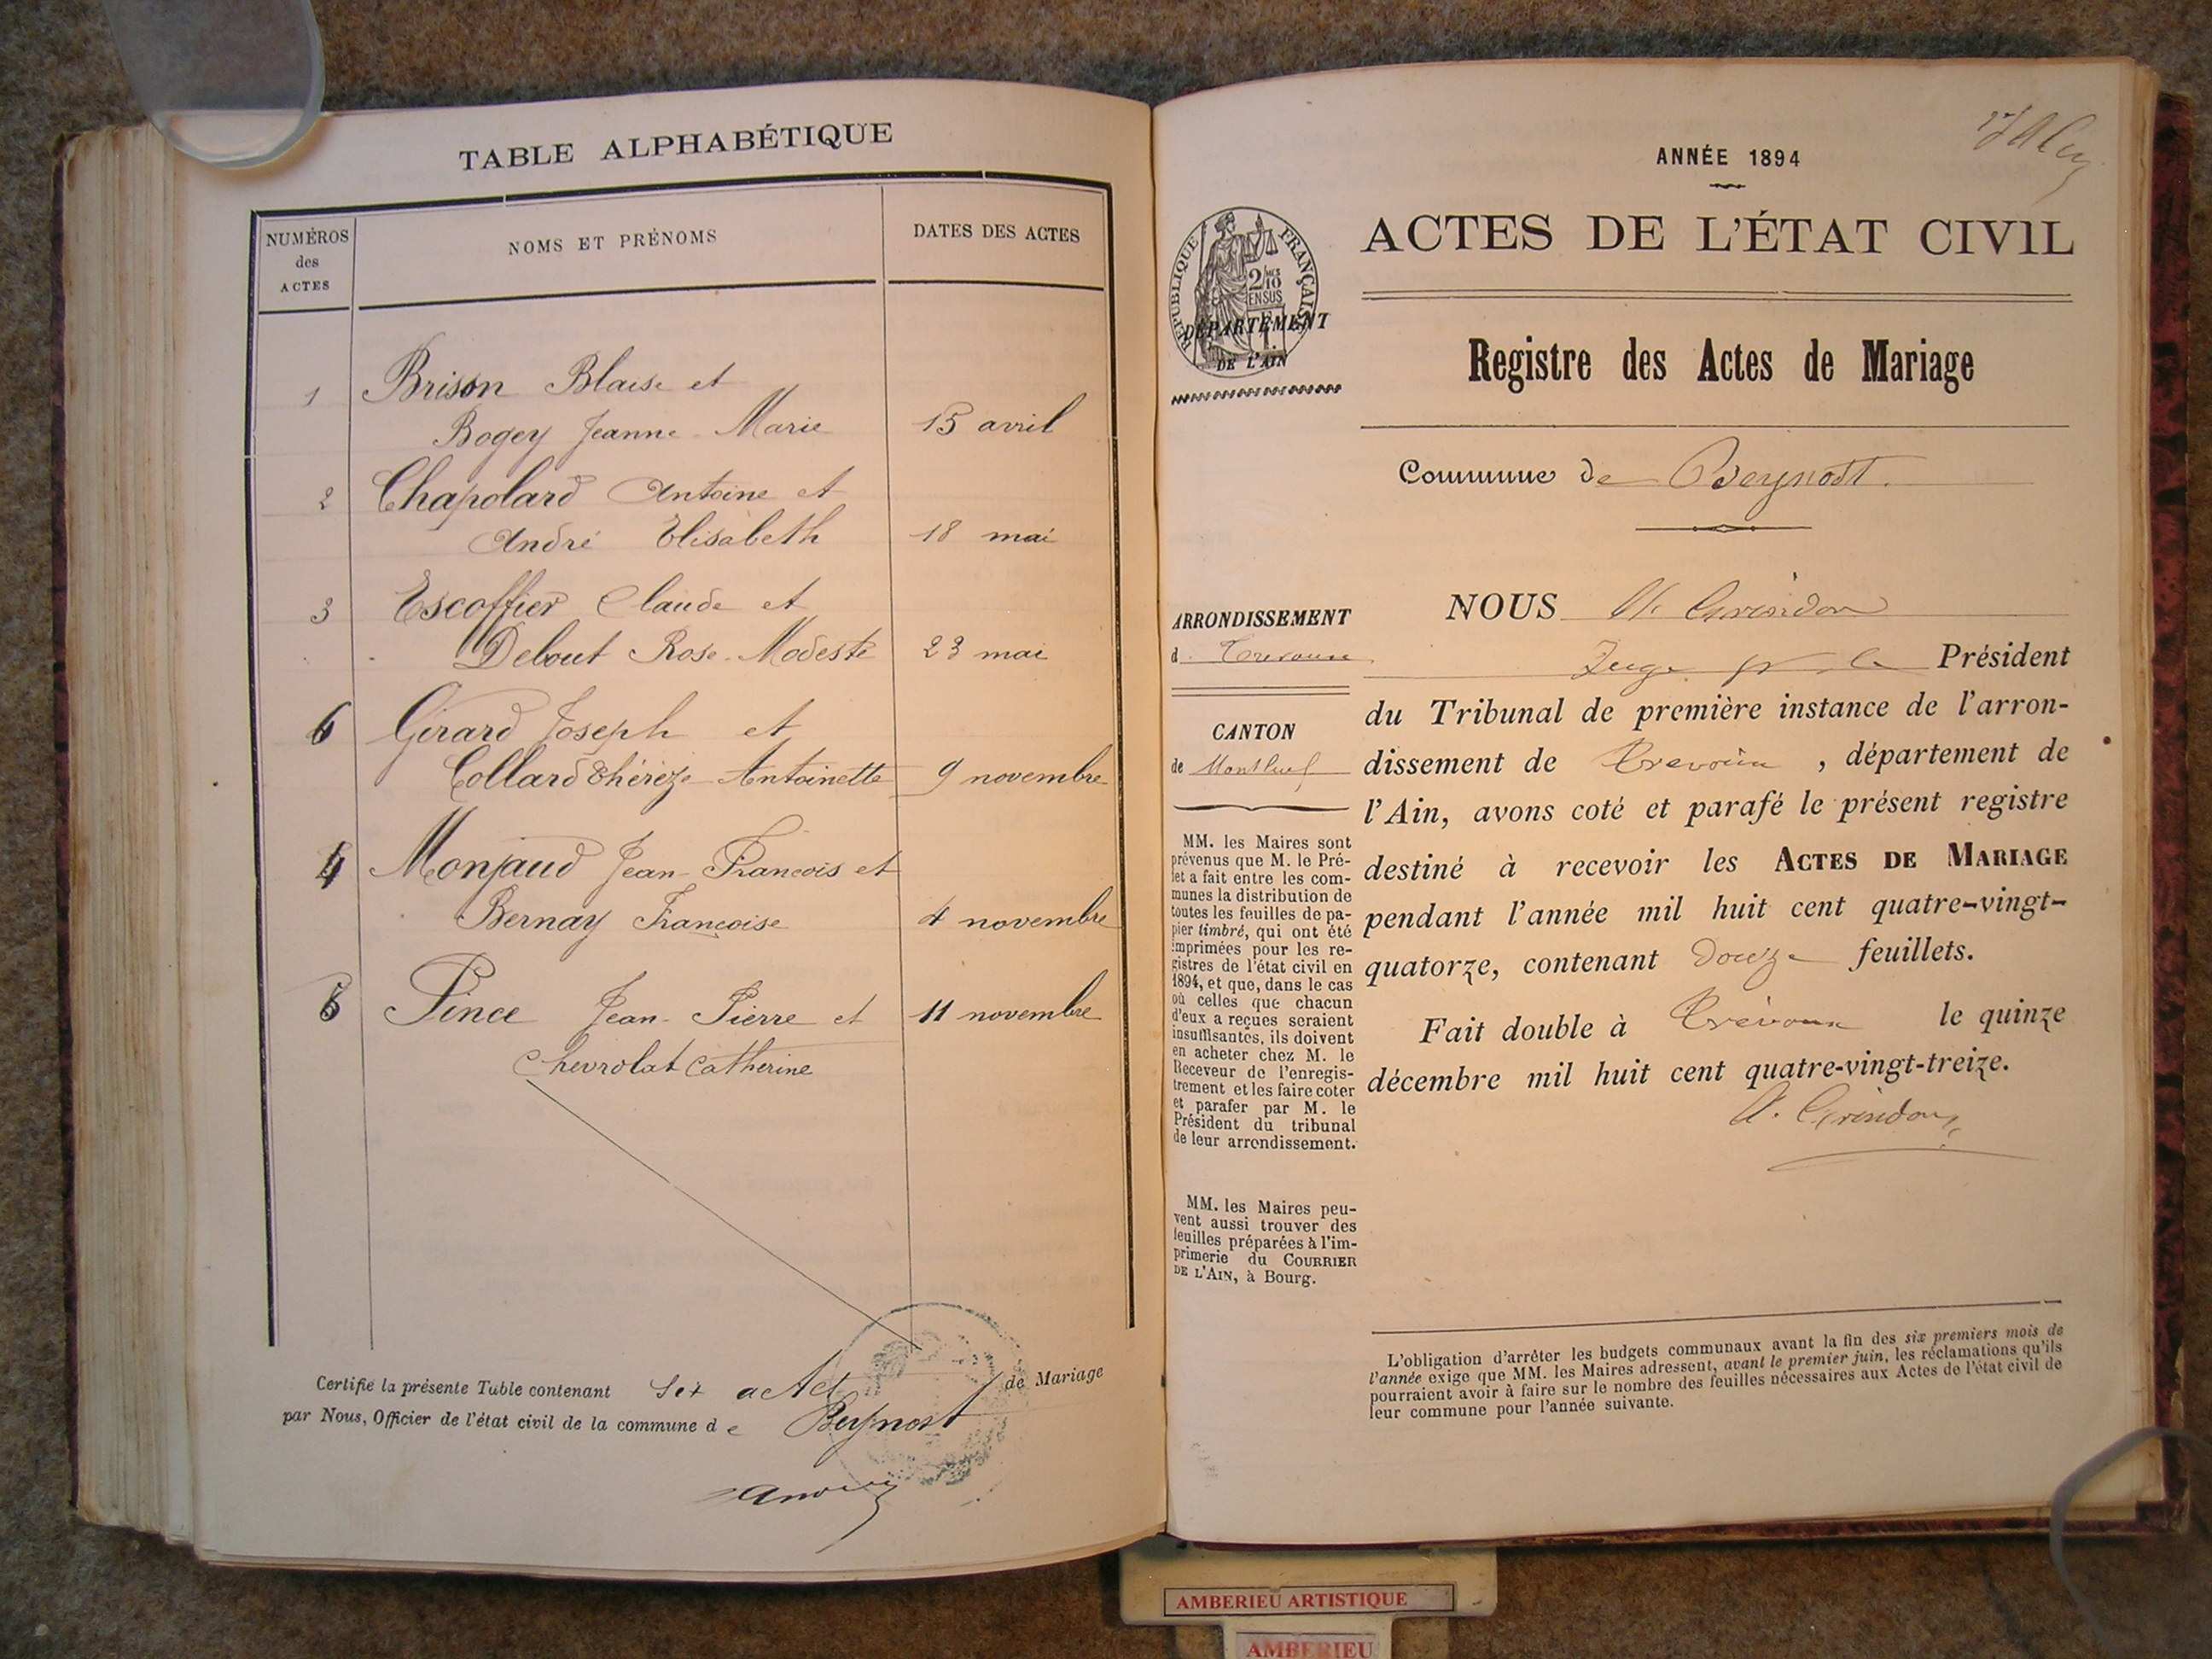 TABLE ALPHABÉTIQUE
NUMÉROS
des
ACTES
NOMS ET PRÉNOMS
DATES DES ACTES
1 Brison Blaise et
Bogey Jeanne-Marie 15 avril
2 Chapolard Antoine et
André Elisabeth 18 mai
3 Escoffier Claude et
Debout Rose-Modeste 23 mai
Girard Joseph et
Collard Thérèze Antoinette 9 novembre
4 Monjaud Jean-Francois et
Bernay Francoise 4 novembre
6 Pince Jean-Pierre et 11 novembre
Chevrolat Catherine
Certifie la présente Table contenant Six actes de Mariage
par Nous, Officier de l'état civil de la commune de Beynost
ANNÉE 1894
RÉPUBLIQUE FRANÇAISE
DÉPARTEMENT
DE L'AIN
ACTES DE L'ÉTAT CIVIL
Registre des Actes de Mariage
Commune de Beynost.
ARRONDISSEMENT
d Trevoux
CANTON
de Montluel
MM. les Maires sont
prévenus que M. le Pré-
fet a fait entre les com-
munes la distribution de
toutes les feuilles de pa-
pier timbré, qui ont été
imprimées pour les re-
gistres de l'état civil en
1894, et que, dans le cas
où celles que chacun
d'eux a reçues seraient
insuffisantes, ils doivent
en acheter chez M. le
Receveur de l'enregis-
trement et les faire coter
et parafer par M. le
Président du tribunal
de leur arrondissement.
MM. les Maires peu-
vent aussi trouver des
feuilles préparées à l'im-
primerie du COURRIER
DE L'AIN, à Bourg.
NOUS
Juge Président
du Tribunal de première instance de l'arron-
dissement de Trevoux, département de
l'Ain, avons coté et parafé le présent registre
destiné à recevoir les ACTES DE MARIAGE
pendant l'année mil huit cent quatre-vingt-
quatorze, contenant douze feuillets.
Fait double à Trévoux le quinze
décembre mil huit cent quatre-vingt-treize.
L'obligation d'arrêter les budgets communaux avant la fin des six premiers mois de
l'année exige que MM. les Maires adressent, avant le premier juin, les réclamations qu'ils
pourraient avoir à faire sur le nombre des feuilles nécessaires aux Actes de l'état civil de
leur commune pour l'année suivante.
AMBERIEU ARTISTIQUE
AMBERIEU